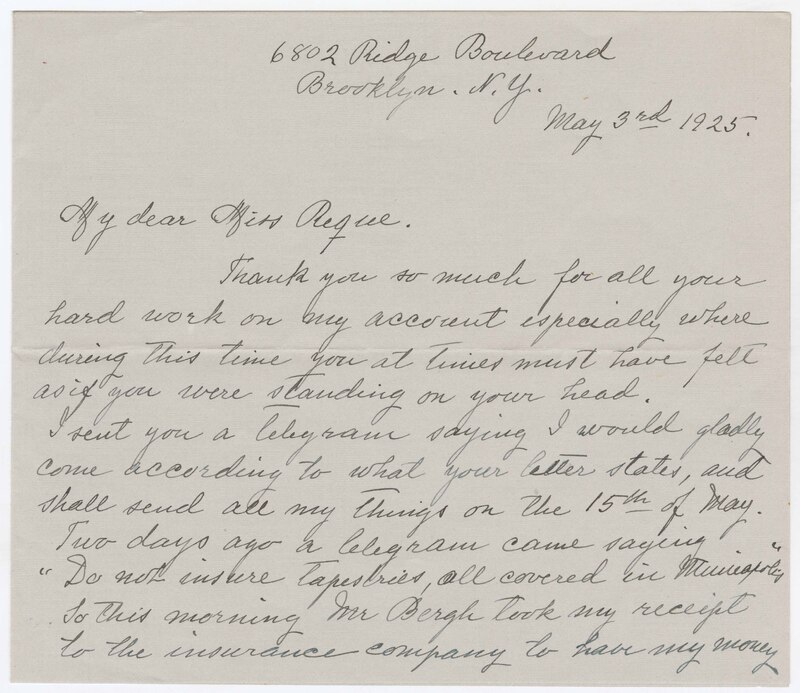 6802 Ridge Boulevard
Brooklyn. N.Y.
May 3rd 1925.
My dear Miss Reque.
Thank you so much for all your
hard work on my account especially where
during this time you at times must have felt
as if you were standing on your head.
I sent you a telegram saying I would gladly
come according to what your letter states, and
shall send all my things on the 15th of May.
Two days ago a telegram came saying
"Do not insure tapestries, all covered in Minneapolis"
So this morning Mr Bergh took my receipt
to the insurance company to have my money